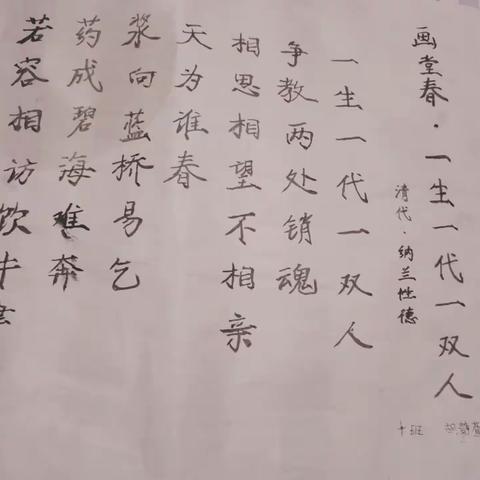 画堂春·一生一代一双人
清代·纳兰性德
十班
一生一代一双人
争教两处销魂
相思相望不相亲
天为谁春
浆向蓝桥易乞
药成碧海难奔
若容相访饮牛